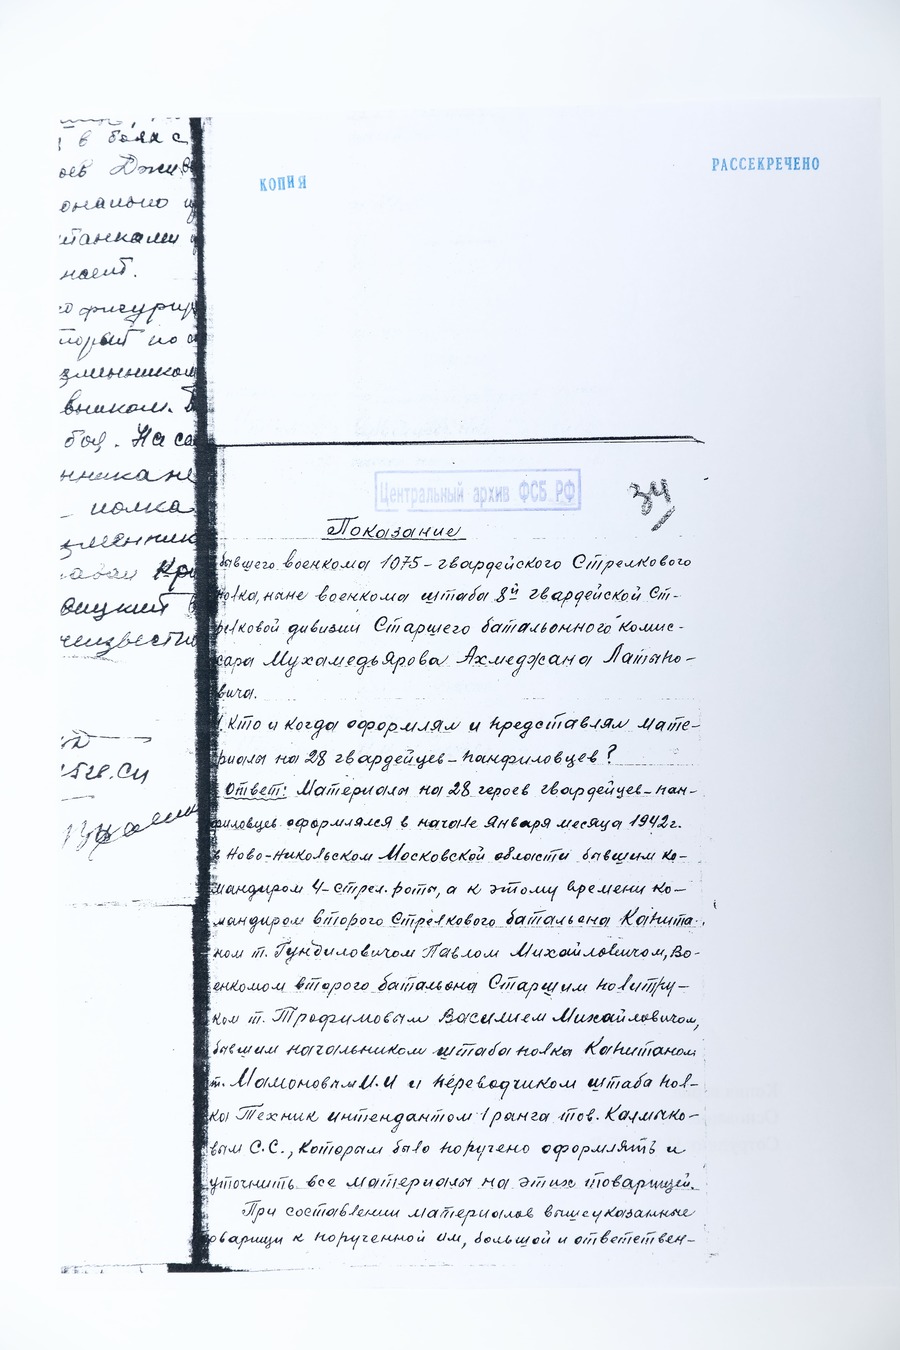 РАССЕКРЕЧЕНО
КОПИЯ
в боях с
онально
танками
вником.
бой. На са
полка
Центральный архив ФСБ РФ
34
Показание
бывшего военкома 1075-гвардейского Стрелкового
полка, ныне военкома штаба 8й гвардейской Ст-
релковой дивизии Старшего батальонного комис-
сара Мухамедьярова Ахмеджана Латыпо-
вича.
1. Кто и когда оформлял и представлял мате-
риалы на 28 гвардейцев-панфиловцев?
Ответ: Материалы на 28 героев гвардейцев-пан-
филовцев оформлялся в начале января месяца 1942г.
в Ново-Никольском Московской области бывшим ко-
мандиром 4-стрел. роты, а к этому времени ко-
мандиром второго Стрелкового батальона Капита-
ном т. Гундиловичом Павлом Михайловичом, Во-
енкомом второго батальона Старшим политру-
ком т. Трофимовым Василием Михайловичом,
бывшим начальником штаба полка Капитаном
т. Мамоновым И.И и переводчиком штаба пол-
ка Техник интендантом 1 ранга тов. Калмыко-
вым С.С., которым было поручено оформлять и
уточнить все материалы на этих товарищей.
При составлении материалов вышеуказанные
товарищи к порученной им, большой и ответствен-